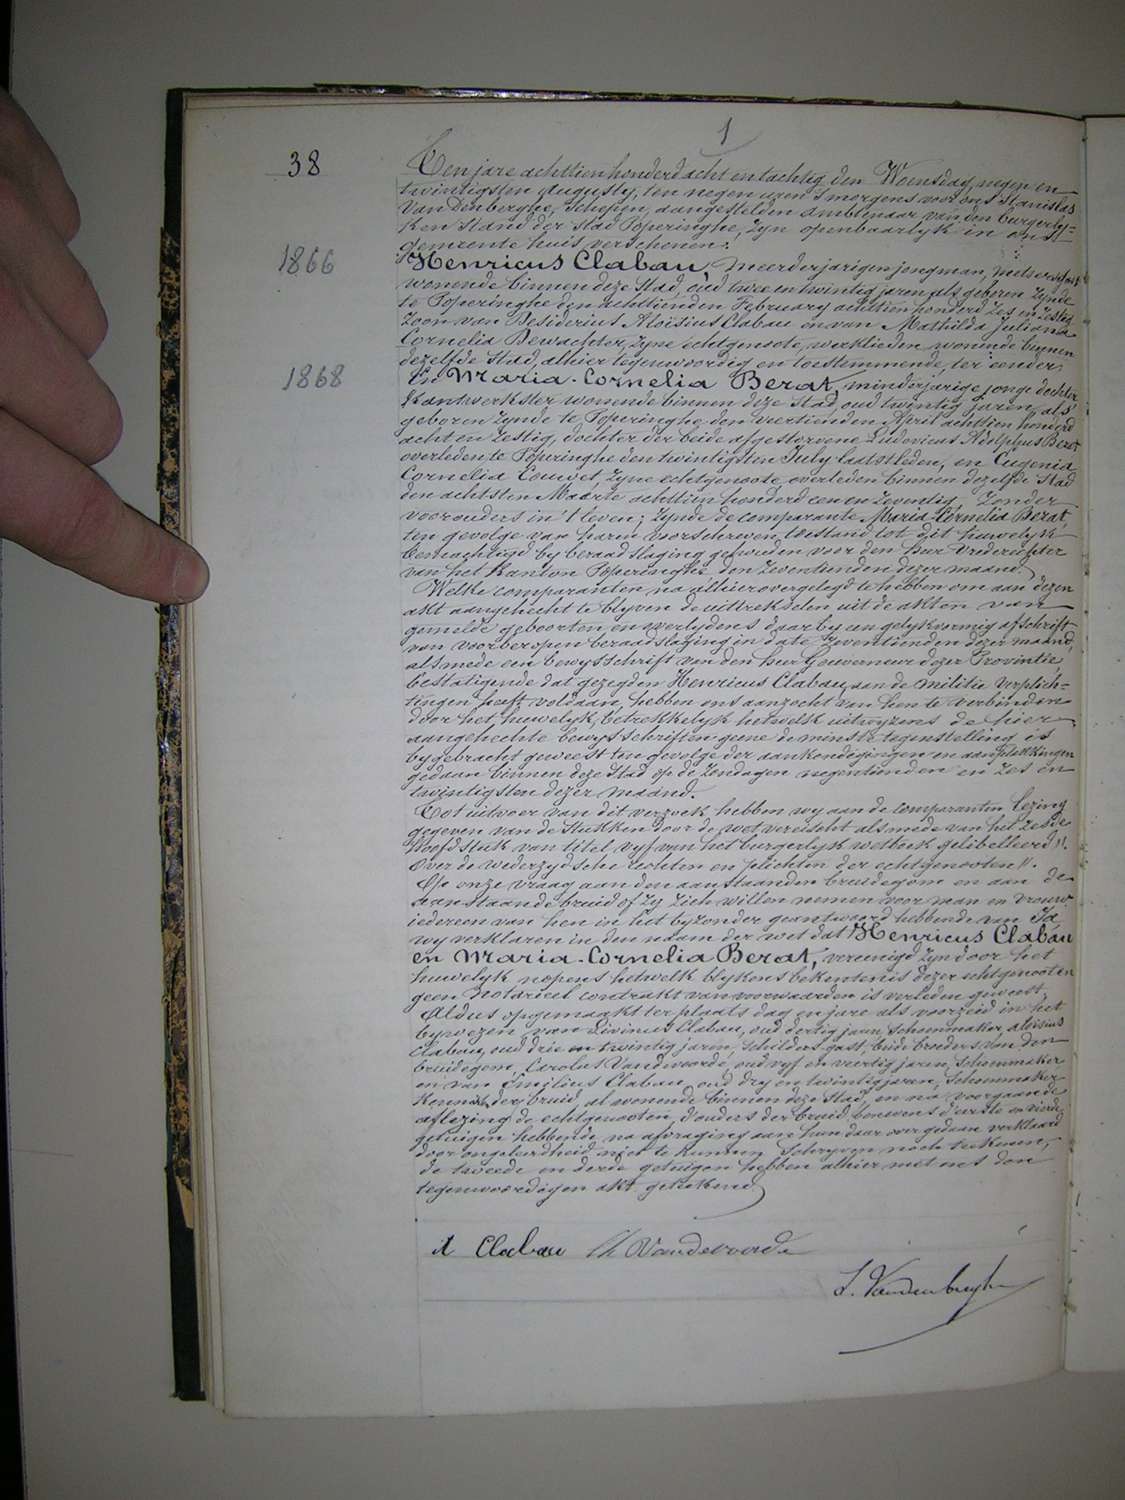 1
38
Ten jare achttien honderd acht en tachtig den Woensdag negen en
twintigsten Augusty, ten negen uren 's morgens voor ons Stanislas
Van Denberghe, Schepen, aangestelden Ambtenaar van den burgerly-
ken Stand der Stad Poperinghe, zyn openbaarlyk in ons
gemeente huis verschenen:
1866
Henricus Clabau, meerderjarigen jongman, metser
wonende binnen deze Stad, oud twee en twintig jaren als geboren zynde
te Poperinghe den achttienden February achttien honderd zes en zestig
Zoon van Desiderius Aloïsius Clabau en van Mathilda Juliana
Cornelia Dewachter, zyne echtgenoote, werklieden wonende binnen
dezelfde Stad, alhier tegenwoordig en toestemmende, ter eender
1868
En Maria-Cornelia Berat, minderjarige jonge dochter
Kantwerkster wonende binnen deze Stad, oud twintig jaren, als
geboren zynde te Poperinghe den veertienden April achttien honderd
acht en zestig, dochter der beide afgestorvene Ludovicus Adolphus Berat
overleden te Poperinghe den twintigsten July laatstleden, en Eugenia
Cornelia Couvet, zyne echtgenoote, overleden binnen dezelfde Stad
den achtsten Maarte achttien honderd een en zeventig, Zonder
voorouders in 't leven; zynde de comparante Maria-Cornelia Berat,
ten gevolge van haren voorschreven toestand tot dit huwelyk
bemachtigd by beraadslaging gehouden voor den heer Vrederechter
van het Kanton Poperinghe, den Zeventienden dezer maand.
Welke comparanten na alhier overgelegd te hebben om aan dezen
akt aangehecht te blyven de uittrekselen uit de akten van
gemelde geboorten en overlydens daarby een gelykvormig afschrift
van voorberoepen beraadslaging in date Zeventienden dezer maand,
alsmede een bewysschrift van den heer Gouverneur dezer Provintie,
bestatigende dat gezegden Henricus Clabau, aan de militie verplich-
tingen heeft voldaan, hebben ons aanzocht van hen te verbinden
door het huwelyk, betrekkelyk hetwelk uitwyzens de hier
aangehechte bewysschriften geene de minste tegenstelling is
bygebracht geweest ten gevolge der aankondigingen en aanplakkingen
gedaan binnen deze Stad op de Zondagen negentienden en Zes en
twintigsten dezer maand.
Tot uitvoer van dit verzoek hebben wy aan de comparanten lezing
gegeven van de Stukken door de wet vereischt alsmede van het zesde
Hoofdstuk van titel vyf van het burgerlyk wetboek gelibelleerd "
Over de wederzydsche rechten en plichten der echtgenooten ".
Op onze vraag aan den aanstaanden bruidegom en aan de
aanstaande bruid of zy zich willen nemen voor man en vrouw
iedereen van hen in het byzonder geantwoord hebbende van Ja,
wy verklaren in den naam der wet dat Henricus Clabau
en Maria-Cornelia Berat, vereenigd zyn door het
huwelyk nopens hetwelk blykens bekentenis dezer echtgenooten
geen Notarieel contrakt van voorwaarden is verleden geweest.
Aldus opgemaakt ter plaats dag en jare als voorzeid in het
bywezen van Livinus Clabau, oud dertig jaren, Schoenmaker, Aloïsius
Clabau, oud drie en twintig jaren, Schilders gast, beide broeders van den
bruidegom, Carolus Vandevoorde, oud vyf en veertig jaren, Schoenmaker
en van Emilius Clabau, oud dry en twintig jaren, Schoenmaker
Kennis der bruid, al wonende binnen deze Stad, en na voorgaande
aflezing de echtgenooten, d'ouders der bruid benevens d'eerste en vierde
getuigen hebbende, na afvraging aan hun daar over gedaan verklaard
door ongeleerdheid niet te kunnen Schryven noch teekenen,
de tweede en derde getuigen hebben alhier met ons den
tegenwoordigen akt geteekend
A Clabau Ch Vandevoorde
S. Vandenberghe